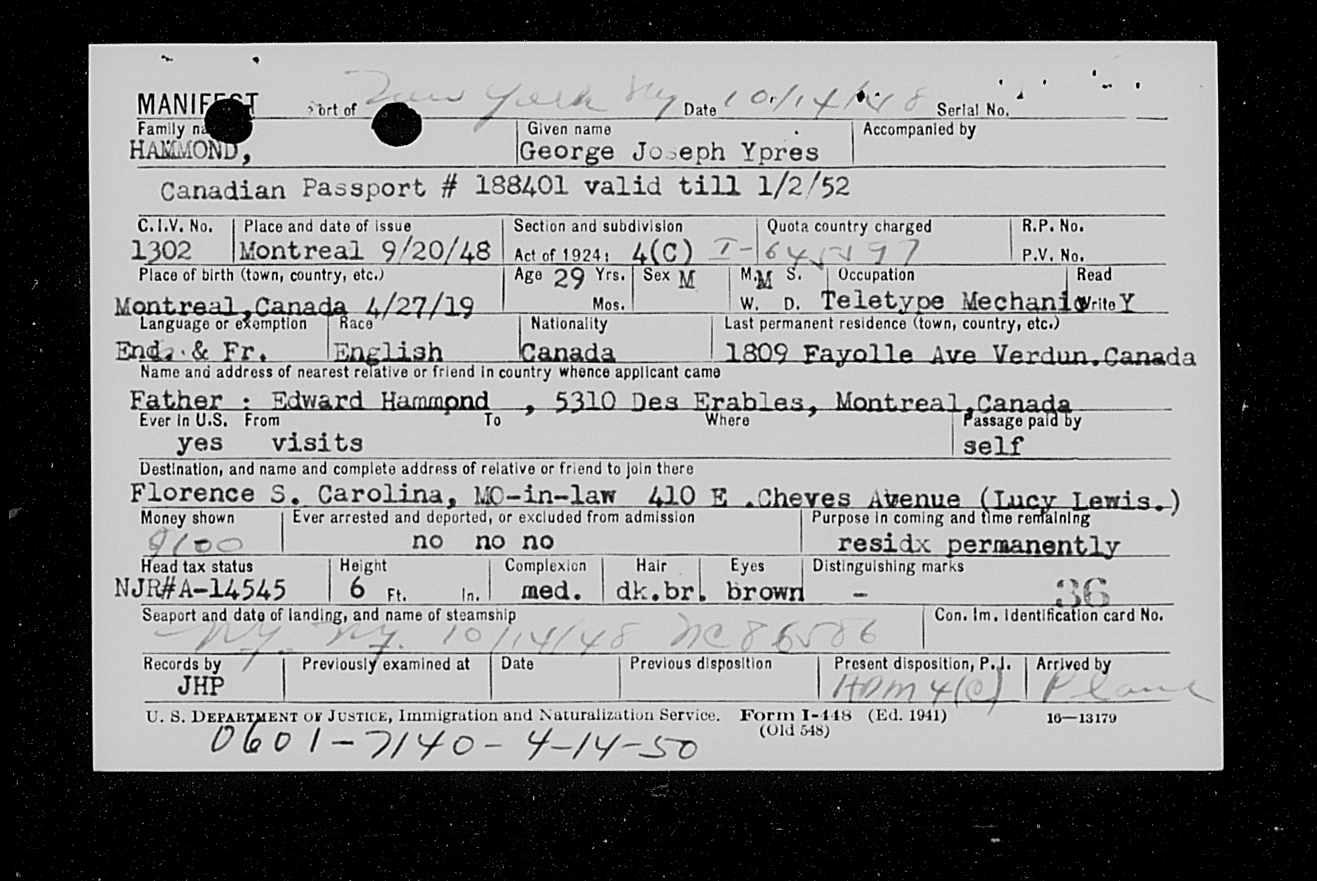 MANIFEST Port of New York Ny Date 10/14/48 Serial No.
Family na Given name Accompanied by
HAMMOND, George Joseph Ypres
Canadian Passport # 188401 valid till 1/2/52
C.I.V. No. Place and date of issue Section and subdivision Quota country charged R.P. No.
1302 Montreal 9/20/48 Act of 1924: 4(C) P.V. No.
Place of birth (town, country, etc.) Age 29 Yrs. Sex M M. M S. Occupation Read
Montreal,Canada 4/27/19 Mos. W. D. Teletype Mechanic Write Y
Language or exemption Race Nationality Last permanent residence (town, country, etc.)
& Fr. English Canada 1809 Fayolle Ave Verdun.Canada
Name and address of nearest relative or friend in country whence applicant came
Father : Edward Hammond , 5310 Des Erables, Montreal,Canada
Ever in U.S. From To Where Passage paid by
yes visits self
Destination, and name and complete address of relative or friend to join there
Florence S. Carolina, MO-in-law 410 E .Cheves Avenue (Lucy Lewis.)
Money shown Ever arrested and deported, or excluded from admission Purpose in coming and time remaining
$100 no no no residx permanently
Head tax status Height Complexion Hair Eyes Distinguishing marks
NJR#A-14545 6 Ft. In. med. dk.br. brown - 36
Seaport and date of landing, and name of steamship Con. Im. Identification card No.
N.Y. N.Y. 10/14/48 NC86586
Records by Previously examined at Date Previous disposition Present disposition, P.I. Arrived by
JHP ADM 4(C) Plane
U. S. Department of Justice, Immigration and Naturalization Service. Form I-448 (Ed. 1941) 16—13179
(Old 548)
0601-7140-4-14-50